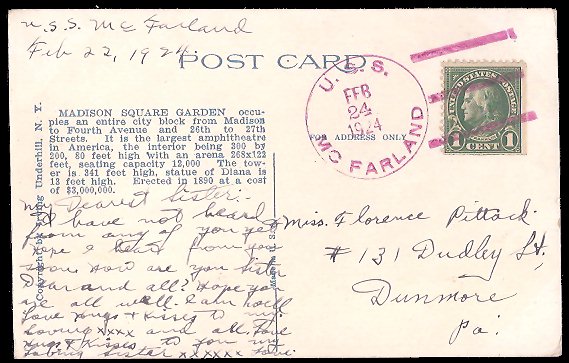 U.S.S. McFarland
Feb 22, 1924.
POST CARD
U.S.S.
FEB
24
1924
MC FARLAND
FOR ADDRESS ONLY
UNITED STATES POSTAGE
1 CENT 1
MADISON SQUARE GARDEN occu-
pies an entire city block from Madison
to Fourth Avenue and 26th to 27th
Streets. It is the largest amphitheatre
in America, the interior being 300 by
200, 80 feet high with an arena 268x122
feet, seating capacity 12,000 The tow-
er is 341 feet high, statue of Diana is
13 feet high. Erected in 1890 at a cost
of $3,000,000.
Copyright by Irving Underhill, N. Y.
My Dearest sister:
I have not heard
from any of you yet
hope I hear from you
soon. How are you sister
dear and all? Hope you
are all well. I am well
love hugs & kisses to my
loving xxxx and all. Love
hugs & kisses to you my
loving sister xxxxxx love.
Miss. Florence Pittock.
# 131 Dudley St,
Dunmore
Pa.